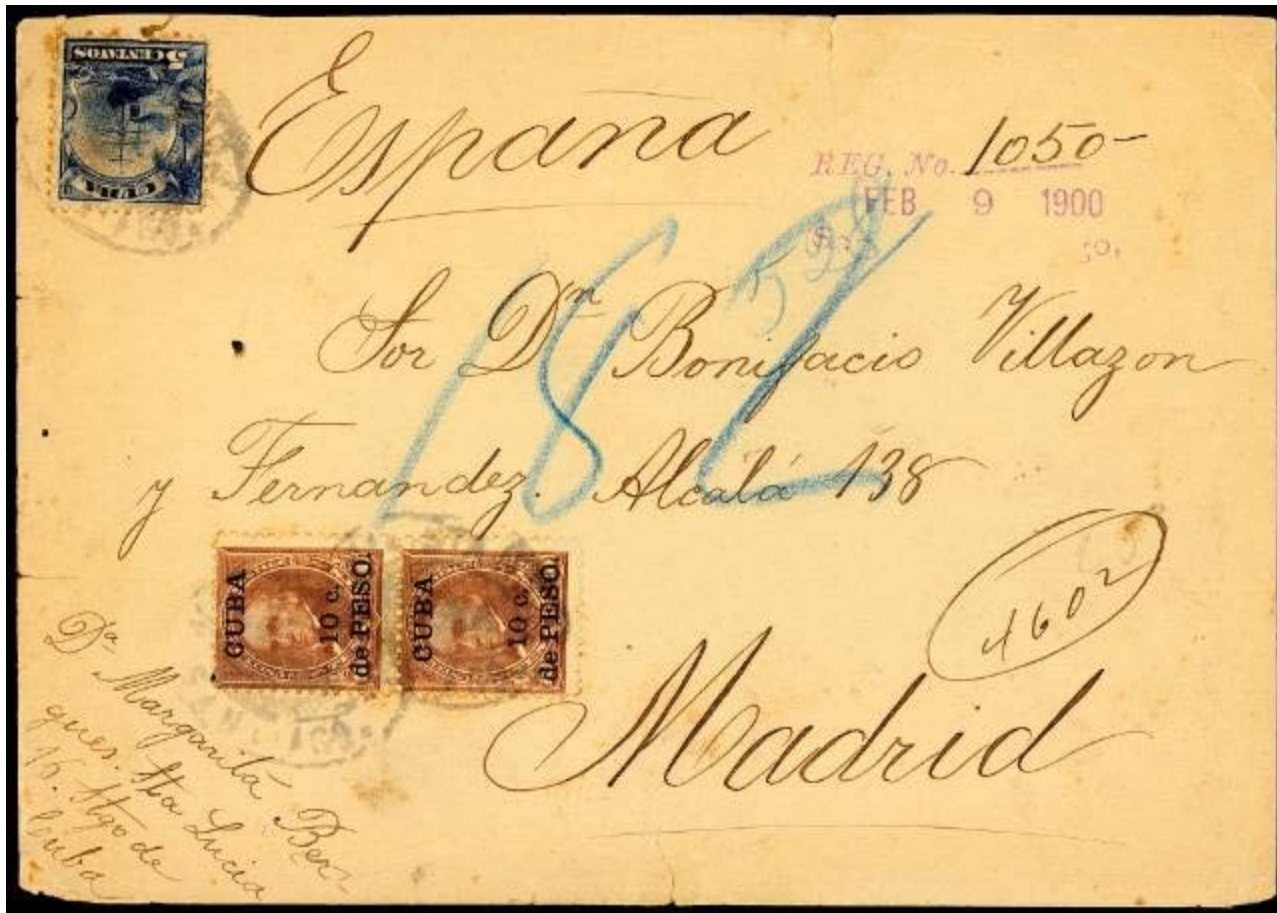 5 CENTAVOS
CUBA
España
REG. No. 1050-
FEB 9 1900
182
Sor Dn Bonifacio Villazon
y Fernandez. Alcalá 138
CUBA
10 c.
de PESO.
CUBA
10 c.
de PESO.
4602
Madrid
Da Margarita Ber
gues. Sta Lucia
16. Stgo de
Cuba